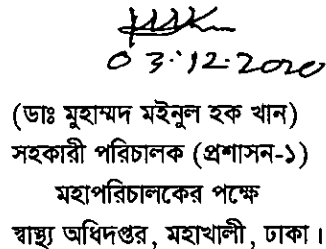 03.12.2020
(ডাঃ মুহাম্মদ মইনুল হক খান)
সহকারী পরিচালক (প্রশাসন-১)
মহাপরিচালকের পক্ষে
স্বাস্থ্য অধিদপ্তর, মহাখালী, ঢাকা।